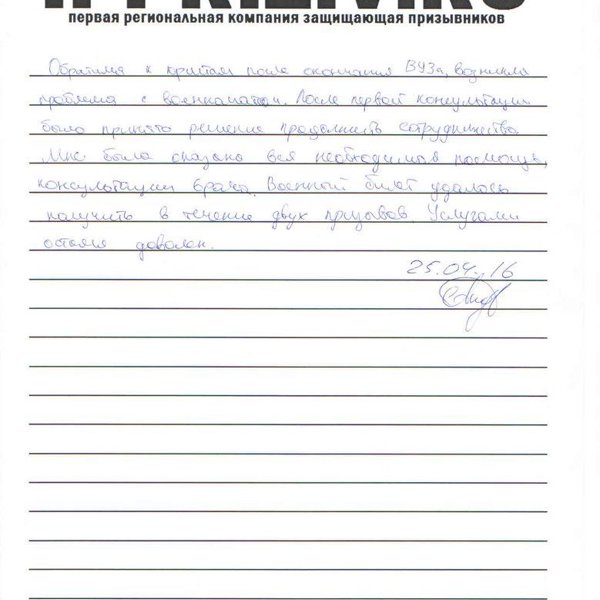 первая региональная компания защищающая призывников
Обратился к юристам после окончания ВУЗа, возникла
проблема с военкоматом. После первой консультации
было принято решение продолжить сотрудничество.
Мне была оказана вся необходимая помощь,
консультации врача. Военный билет удалось
получить в течение двух призывов. Услугами
остался доволен.
25.04.16